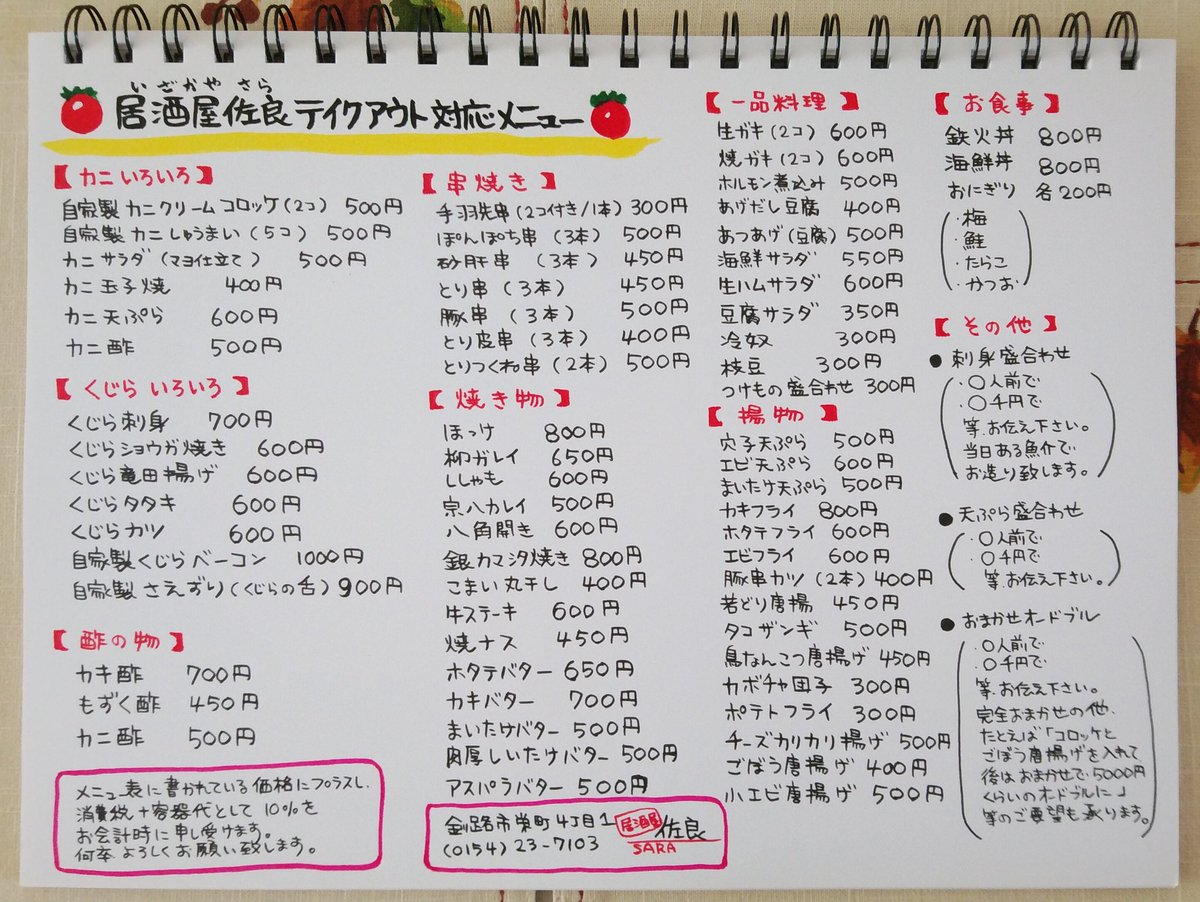 いざかや さら
居酒屋佐良テイクアウト対応メニュー
【カニいろいろ】
自家製カニクリームコロッケ(2コ) 500円
自家製カニしゅうまい(5コ) 500円
カニサラダ(マヨ仕立て) 500円
カニ玉子焼 400円
カニ天ぷら 600円
カニ酢 500円
【くじらいろいろ】
くじら刺身 700円
くじらショウガ焼き 600円
くじら竜田揚げ 600円
くじらタタキ 600円
くじらカツ 600円
自家製くじらベーコン 1000円
自家製さえずり(くじらの舌) 900円
【酢の物】
カキ酢 700円
もずく酢 450円
カニ酢 500円
メニュー表に書かれている価格にプラスし、
消費税+容器代として10%を
お会計時に申し受けます。
何卒よろしくお願い致します。
【串焼き】
手羽先串(2コ付き/1本) 300円
ぽんぽち串(3本) 500円
砂肝串(3本) 450円
とり串(3本) 450円
豚串(3本) 500円
とり皮串(3本) 400円
とりつくね串(2本) 500円
【焼き物】
ほっけ 800円
柳ガレイ 650円
ししゃも 600円
宗八カレイ 500円
八角開き 600円
銀カマシタ焼き 800円
こまい丸干し 400円
牛ステーキ 600円
焼ナス 450円
ホタテバター 650円
カキバター 700円
まいたけバター 500円
肉厚しいたけバター 500円
アスパラバター 500円
釧路市栄町4丁目1 居酒屋 佐良
(0154)23-7103 SARA
【一品料理】
生ガキ(2コ) 600円
焼ガキ(2コ) 600円
ホルモン煮込み 500円
あげだし豆腐 400円
あつあげ(豆腐) 500円
海鮮サラダ 550円
生ハムサラダ 600円
豆腐サラダ 350円
冷奴 300円
枝豆 300円
つけもの盛合わせ 300円
【揚物】
穴子天ぷら 500円
エビ天ぷら 600円
まいたけ天ぷら 500円
カキフライ 800円
ホタテフライ 600円
エビフライ 600円
豚串カツ(2本) 400円
若どり唐揚 450円
タコザンギ 500円
鳥なんこつ唐揚げ 450円
カボチャ団子 300円
ポテトフライ 300円
チーズカリカリ揚げ 500円
ごぼう唐揚げ 400円
小エビ唐揚げ 500円
【お食事】
鉄火丼 800円
海鮮丼 800円
おにぎり 各200円
・梅
・鮭
・たらこ
・かつお
【その他】
●刺身盛合わせ
・〇人前で
・〇千円で
等、お伝え下さい。
当日ある魚介で
お造り致します。
●天ぷら盛合わせ
・〇人前で
・〇千円で
等、お伝え下さい。
●おまかせオードブル
・〇人前で
・〇千円で
等、お伝え下さい。
完全おまかせの他、
たとえば「コロッケと
ごぼう唐揚げを入れて
後はおまかせで5000円
くらいのオードブルに」
等のご要望も承ります。